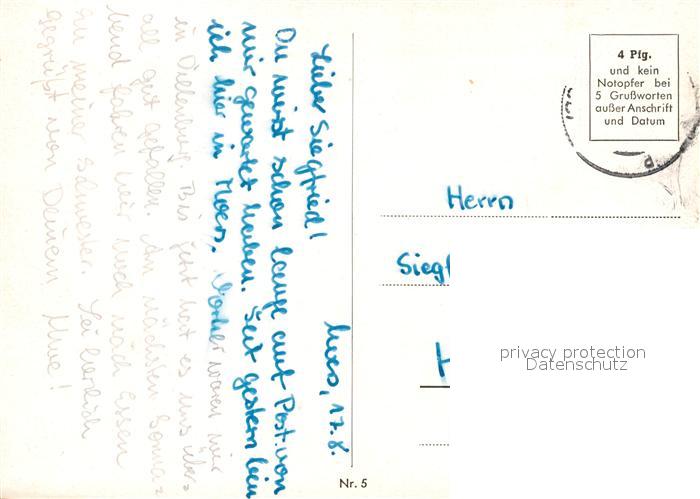 Moers, 17.8.
Lieber Siegfried!
Du wirst schon lange auf Post von
mir gewartet haben. Seit gestern bin
ich hier in Moers. Vorher waren wir
in Dillenburg. Bis jetzt hat es uns über=
all gut gefallen. Am nächsten Sonna=
bend fahren wir noch nach Essen
zu meiner Schwester. Sei herzlich
gegrüßt von Deinem Uwe!
4 Pfg.
und kein
Notopfer bei
5 Grußworten
außer Anschrift
und Datum
Herrn
Siegf
privacy protection
Datenschutz
Nr. 5